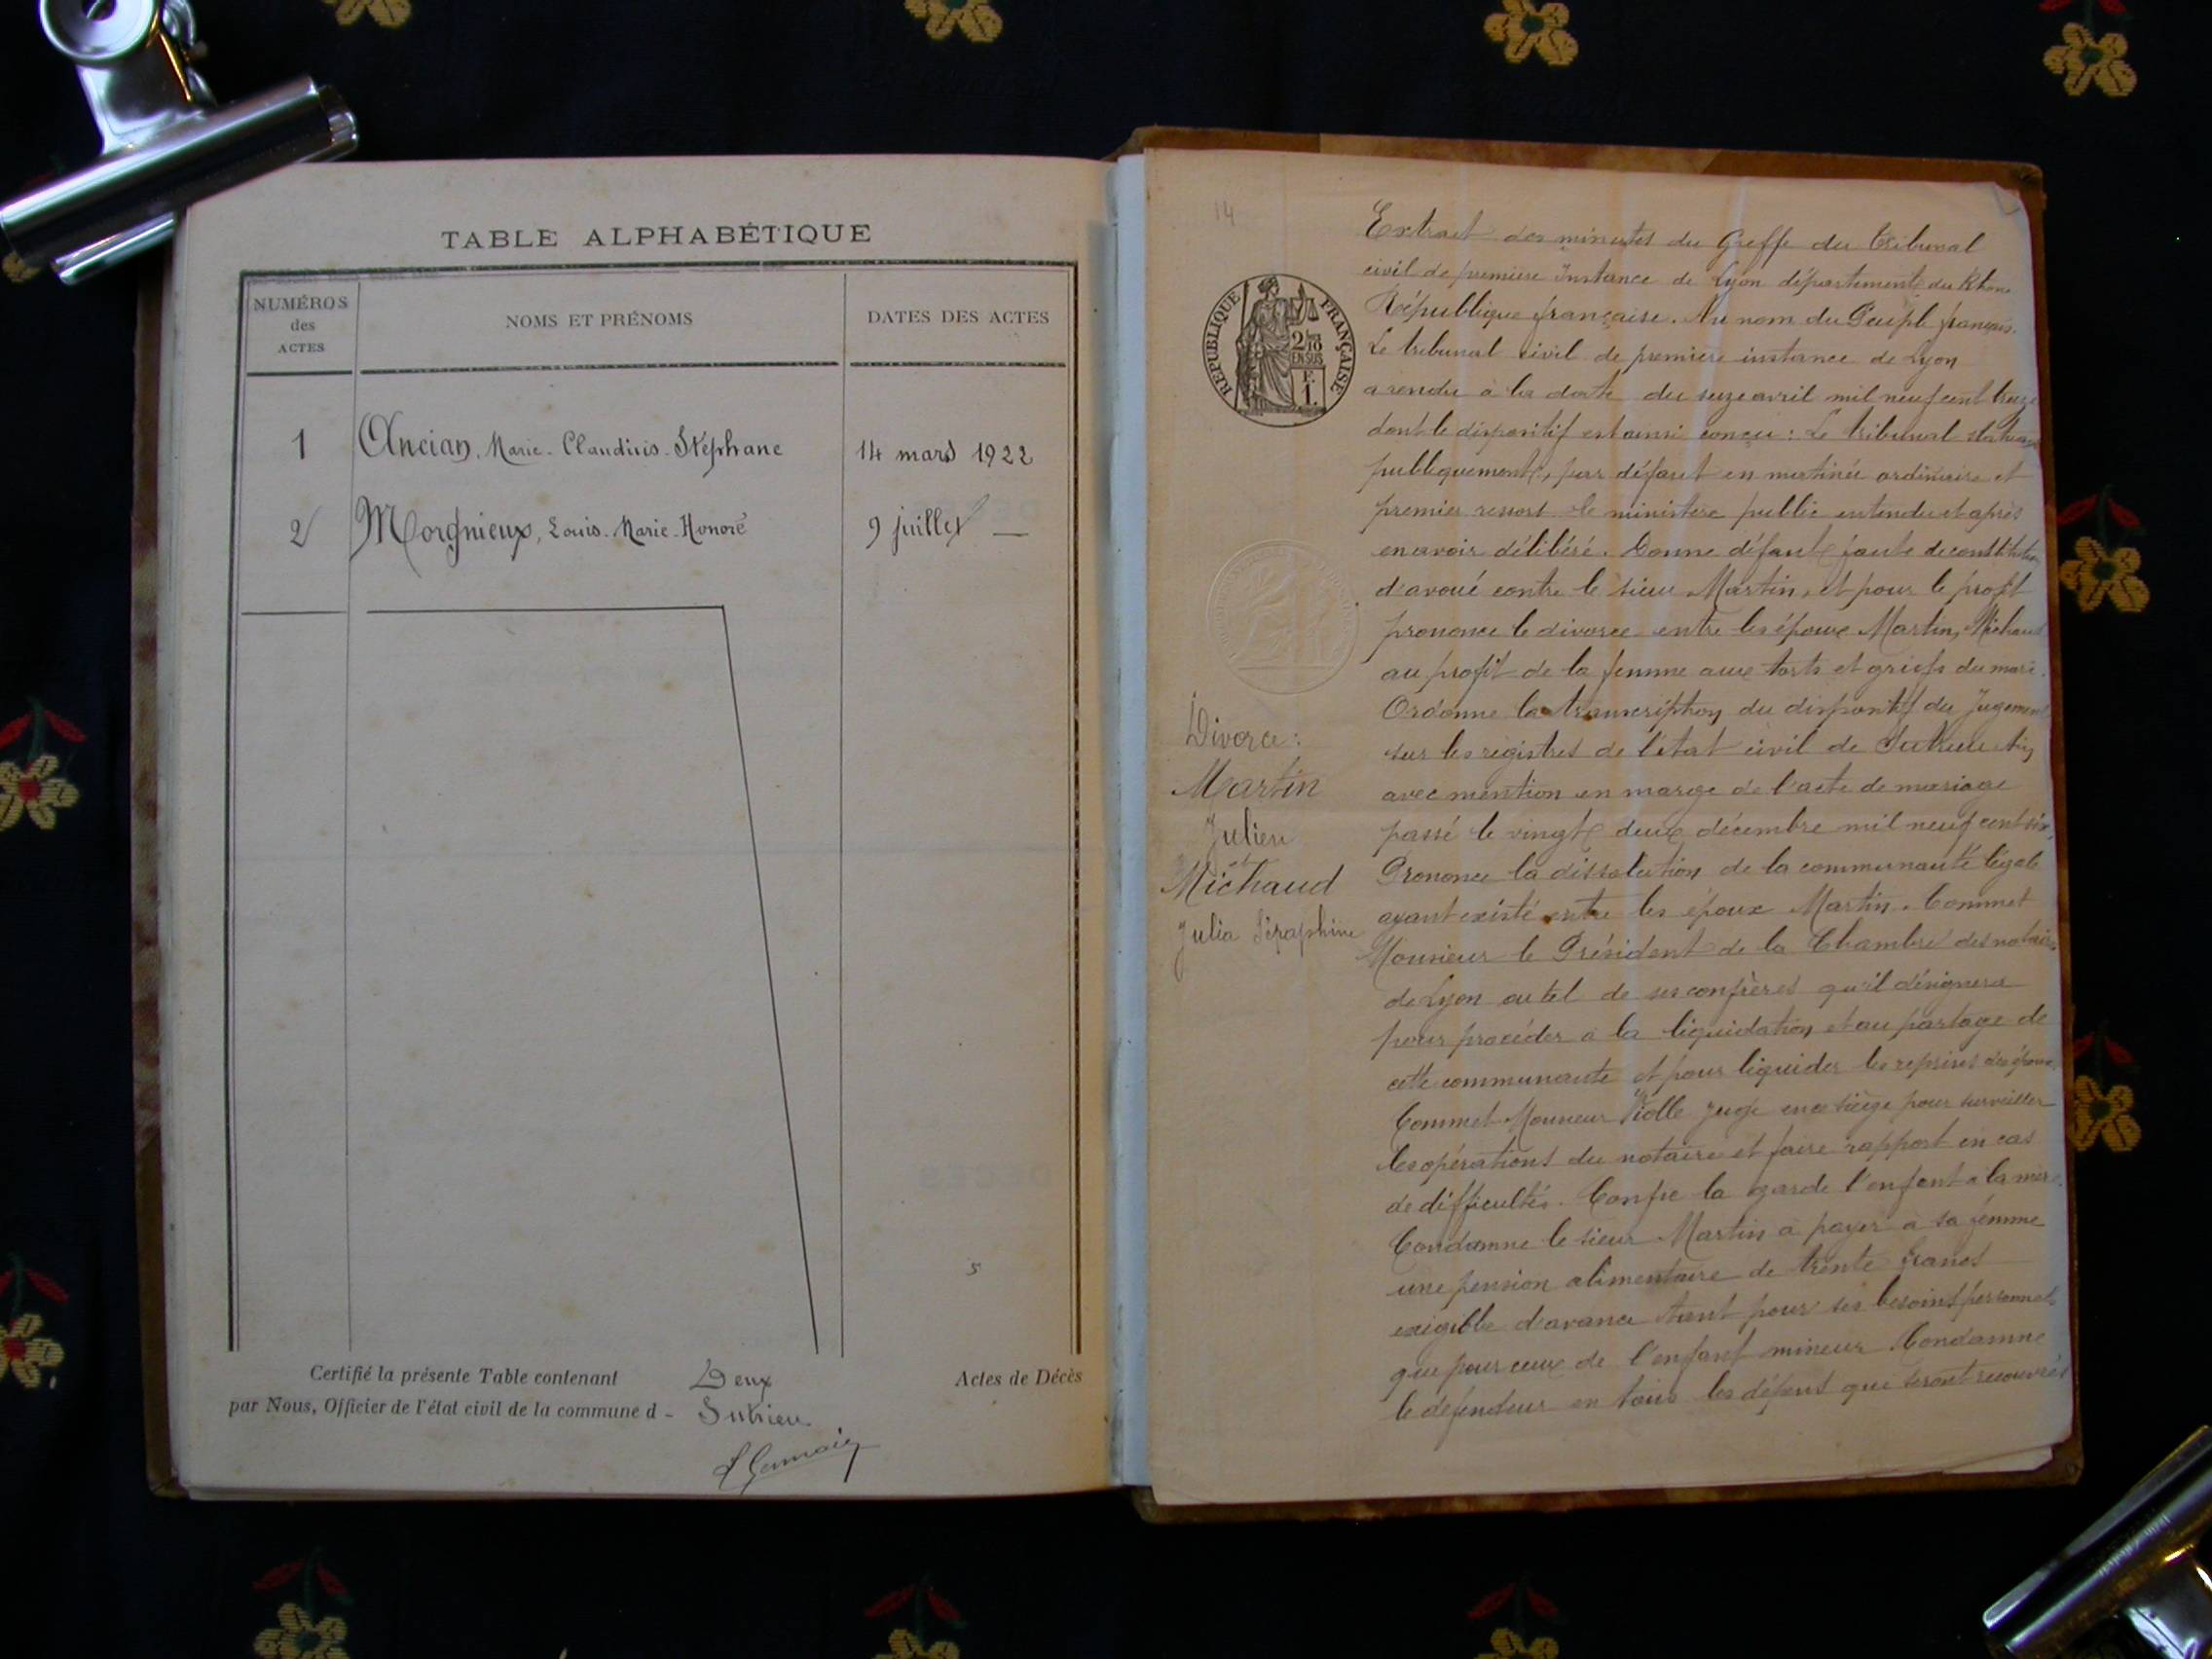 TABLE ALPHABÉTIQUE
NUMÉROS
des
ACTES
NOMS ET PRÉNOMS
DATES DES ACTES
1 Ancian, Marie-Claudius-Stéphane 14 mars 1922
2 Morgnieux, Louis-Marie-Honoré 9 juillet —
5
Certifié la présente Table contenant Deux Actes de Décès
par Nous, Officier de l'état civil de la commune d - Sutrieu
14
RÉPUBLIQUE FRANÇAISE
2/10
EN SUS
F.
1.
Divorce:
Martin
Julien
et
Michaud
Julia Séraphine
Extrait des minutes du Greffe du Tribunal
civil de première Instance de Lyon département du Rhone
République française. Au nom du Peuple français.
Le tribunal civil de première instance de Lyon
a rendu à la date du seize avril mil neuf cent treize
dont le dispositif est ainsi conçu : Le tribunal statuant
publiquement, par défaut en matière ordinaire et
premier ressort le ministère public entendu et après
en avoir délibéré. Donne défaut faute de constitution
d'avoué contre le sieur Martin, et pour le profit
prononce le divorce entre les époux Martin, Michaud
au profit de la femme aux torts et griefs du mari.
Ordonne la transcription du dispositif du Jugement
sur les registres de l'état civil de Sutrieu Ain
avec mention en marge de l'acte de mariage
passé le vingt deux décembre mil neuf cent six.
Prononce la dissolution de la communauté légale
ayant existé entre les époux Martin. Commet
Monsieur le Président de la Chambre des notaires
de Lyon ou tel de ses confrères qu'il désignera
pour procéder à la liquidation et au partage de
cette communauté et pour liquider les reprises des époux.
Commet Monsieur Violle Juge en ce siège pour surveiller
les opérations du notaire et faire rapport en cas
de difficultés. Confie la garde l'enfant à la mère.
Condamne le sieur Martin à payer à sa femme
une pension alimentaire de trente francs
exigible d'avance tant pour ses besoins personnels
que pour ceux de l'enfant mineur. Condamne
le défendeur en tous les dépens qui seront recouvrés